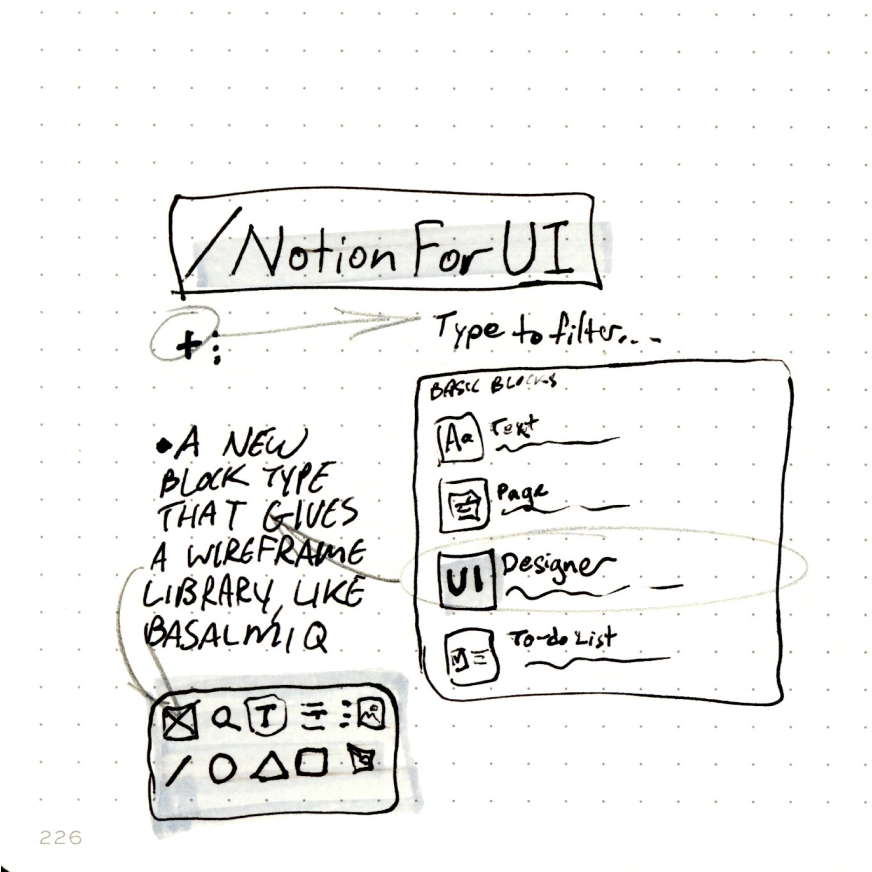 /Notion For UI
+:
Type to filter...
BASIC BLOCKS
Aa Text
Page
UI Designer
To-do List
• A NEW
BLOCK TYPE
THAT GIVES
A WIREFRAME
LIBRARY, LIKE
BASALMIQ
T
226